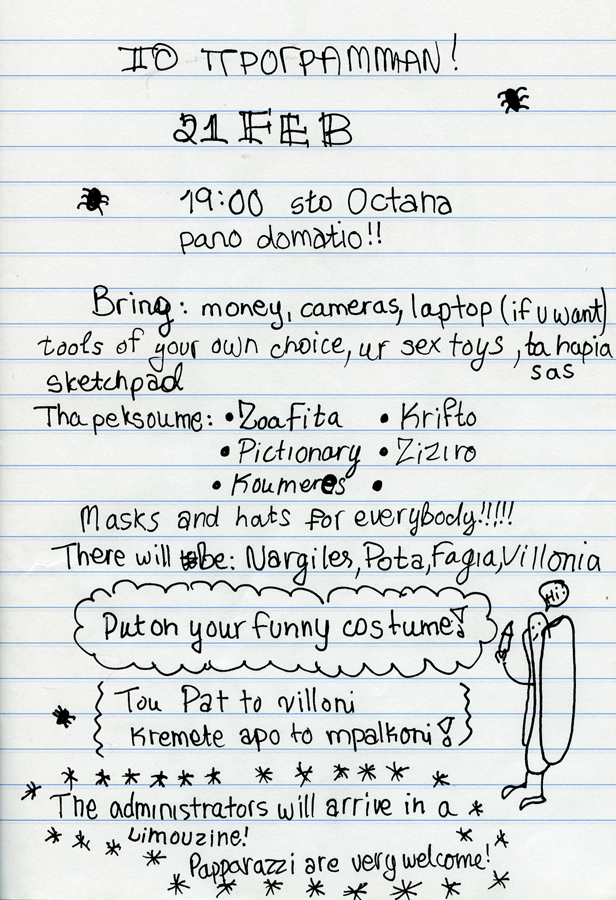 ΤΟ ΠΡΟΓΡΑΜΜΑΝ!
21 FEB
19:00 sto Octana
pano domatio!!
Bring: money, cameras, laptop (if u want)
tools of your own choice, ur sex toys, ta hapia
sas
sketchpad
Tha peksoume: • Zoafita • Krifto
• Pictionary • Ziziro
• Koumeres •
Masks and hats for everybody!!!!!
There will be: Nargiles, Pota, Fagia, Villonia
Hi!
Put on your funny costume!
{Tou Pat to villoni
kremete apo to mpalkoni!}
The administrators will arrive in a
Limouzine!
Papparazzi are very welcome!